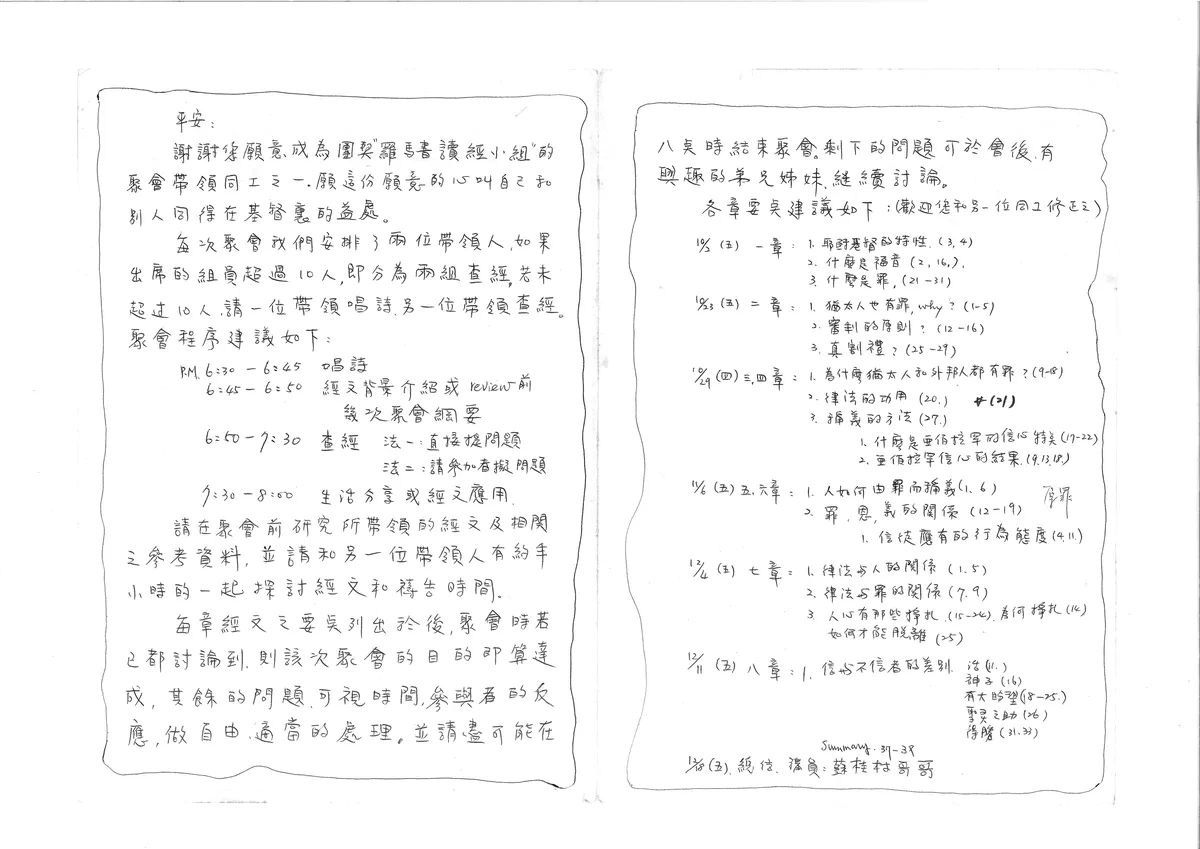 平安:
謝謝您願意成為團契"羅馬書讀經小組"的
聚會帶領同工之一.願這份願意的心叫自己和
別人同得在基督裏的益處。
每次聚會我們安排了兩位帶領人,如果
出席的組員超過10人,即分為兩組查經,若未
超过10人,請一位帶領唱詩,另一位帶領查經。
聚會程序建議如下:
P.M. 6:30 - 6:45 唱詩
6:45 - 6:50 經文背景介紹或review前
幾次聚會綱要
6:50 - 7:30 查經 法一:直接提問題
法二:請參加者擬問題
7:30 - 8:00 生活分享或經文應用.
請在聚會前研究所帶領的經文及相關
之參考資料,並請和另一位帶領人有約半
小時的一起探討經文和禱告時間.
每章經文之要点列出於後,聚會時若
已都討論到,則該次聚會的目的即算達
成,其餘的問題,可視時間,參與者的反
應,做自由、適當的處理。並請盡可能在
八点時結束聚會。剩下的問題可於會後,有
興趣的弟兄姊妹,繼續討論。
各章要点建議如下:(歡迎您和另一位同工修正之)
(五) 一章: 1. 耶穌基督的特性. (3, 4)
2. 什麼是福音 (2, 16,).
3. 什麼是罪, (21-31)
10/23 (五) 二章: 1. 猶太人也有罪, why? (1-5)
2. 審判的原則? (12-16)
3. 真割禮? (25-29)
10/29 (四) 三,四章: 1. 為什麼猶太人和外邦人都有罪? (9-18)
2. 律法的功用 (20.) (21)
3. 稱義的方法 (27.)
1. 什麼是亞伯拉罕的信心特点 (17-22)
2. 亞伯拉罕信心的結果. (9.13.18.)
11/6 (五) 五,六章: 1. 人如何由罪而稱義 (1, 6) 原罪
2. 罪,恩,義的關係 (12-19)
1. 信徒應有的行為態度 (4.11.)
12/4 (五) 七章: 1. 律法与人的關係 (1.5)
2. 律法与罪的關係 (7.9)
3. 人心有那些掙扎 (15-24), 為何掙扎 (14)
如何才能脫離 (25)
12/11 (五) 八章: 1. 信与不信者的差別. 治 (11.)
神子 (16)
有大盼望 (18-25.)
聖灵之助 (26)
得勝 (31.33)
Summary. 37-39
(五). 總結. 講員: 蘇桂村哥哥